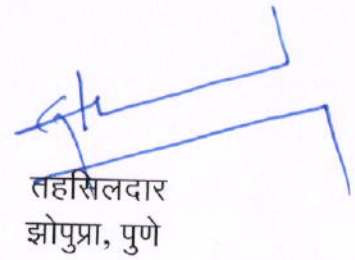 तहसिलदार
झोपुप्रा, पुणे